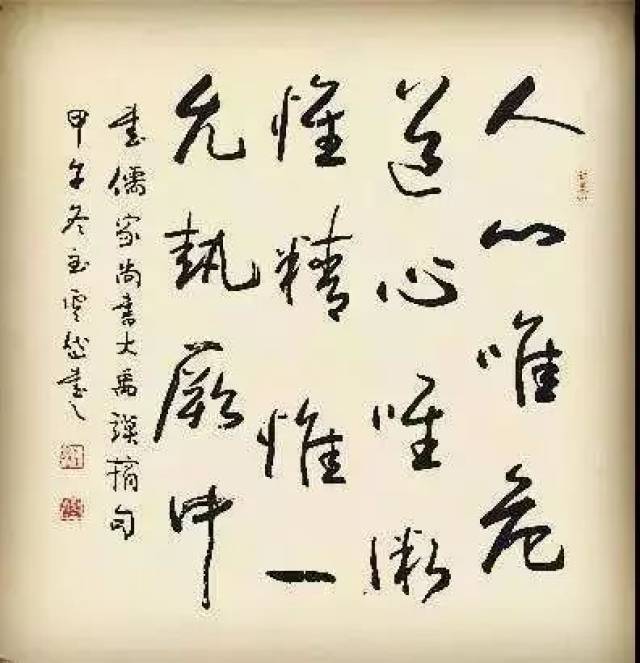 人心唯危
道心唯微
惟精惟一
允執厥中
書儒家尚書大禹謨摘句
甲午冬至雲岱書